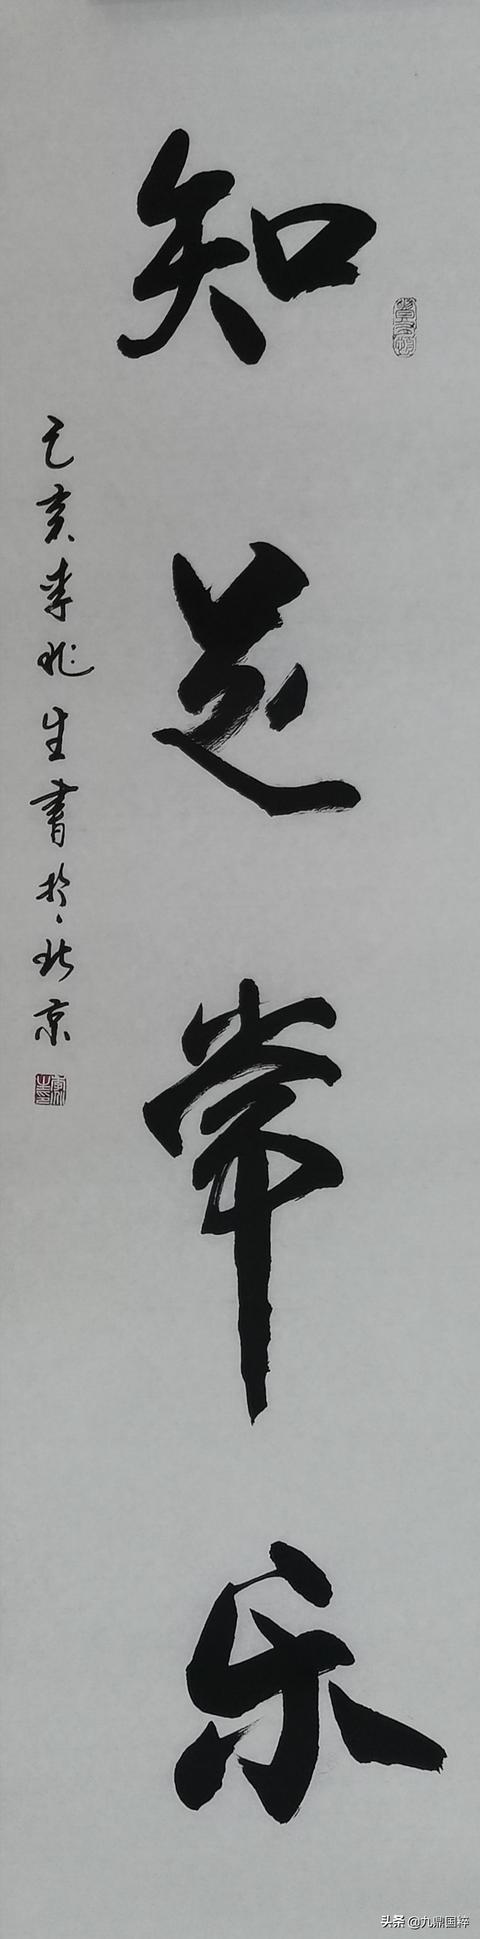 知足常乐
己亥李兆生書於北京
头条 @九鼎国粹